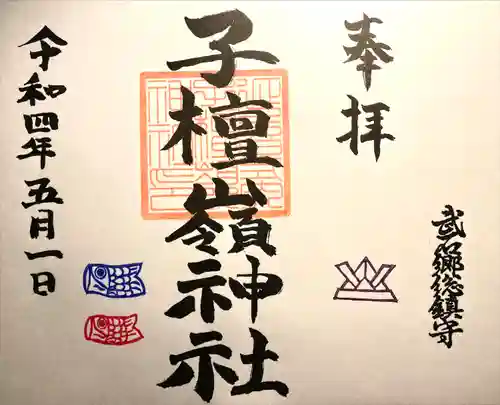 奉拝
武石郷総鎮守
子檀嶺神社
令和四年五月一日